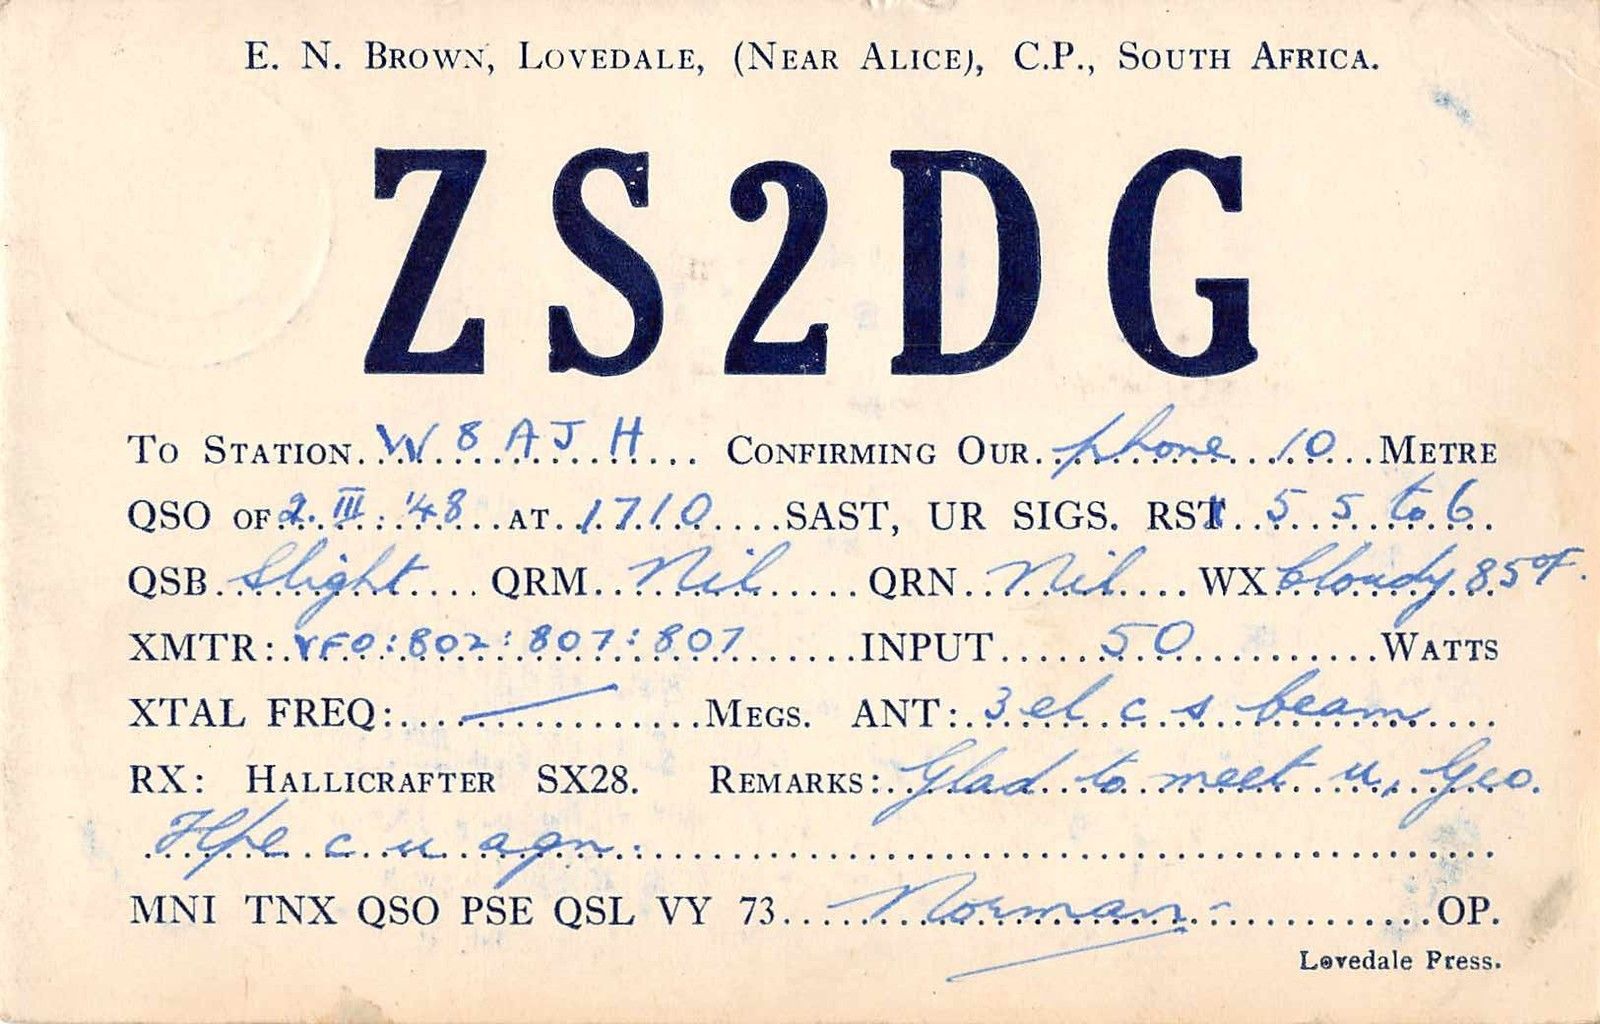 E. N. Brown, Lovedale, (Near Alice), C.P., South Africa.
ZS2DG
To Station W8AJH Confirming Our phone 10 Metre
QSO of 2.III.'48 at 1710 SAST, UR SIGS. RST 5 5 to 6
QSB Slight QRM Nil QRN Nil WX Cloudy 85°F.
XMTR: VFO:802:807:807 INPUT 50 Watts
XTAL FREQ: — Megs. ANT: 3 el c s beam
RX: Hallicrafter SX28. Remarks: Glad to meet u, Geo.
Hpe c u agn.
MNI TNX QSO PSE QSL VY 73 Norman OP.
Lovedale Press.